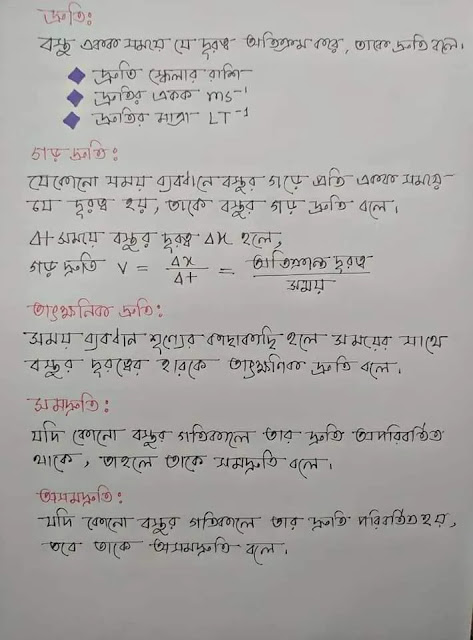 দ্রুতি:
বস্তু একক সময়ে যে দূরত্ব অতিক্রম করে, তাকে দ্রুতি বলে।
দ্রুতি স্কেলার রাশি
দ্রুতির একক ms⁻¹
দ্রুতির মাত্রা LT⁻¹
গড় দ্রুতি:
যেকোনো সময় ব্যবধানে বস্তুর গড়ে প্রতি একক সময়ে
যে দূরত্ব হয়, তাকে বস্তুর গড় দ্রুতি বলে।
Δt সময়ে বস্তুর দূরত্ব Δx হলে,
গড় দ্রুতি v = Δx/Δt = অতিক্রান্ত দূরত্ব/সময়
তাৎক্ষনিক দ্রুতি:
সময় ব্যবধান শূণ্যের কাছাকাছি হলে সময়ের সাথে
বস্তুর দূরত্বের হারকে তাৎক্ষণিক দ্রুতি বলে।
সমদ্রুতি:
যদি কোনো বস্তুর গতিকালে তার দ্রুতি অপরিবর্তিত
থাকে, তাহলে তাকে সমদ্রুতি বলে।
অসমদ্রুতি:
যদি কোনো বস্তুর গতিকালে তার দ্রুতি পরিবর্তিত হয়,
তবে তাকে অসমদ্রুতি বলে।